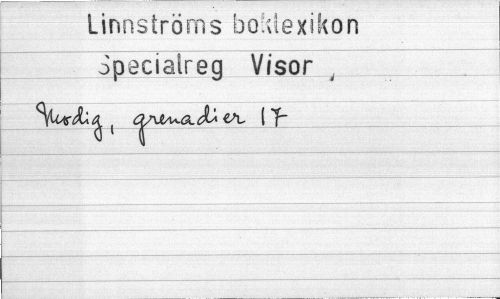 Linnströms boklexikon
Specialreg Visor,
Modig, grenadier 17